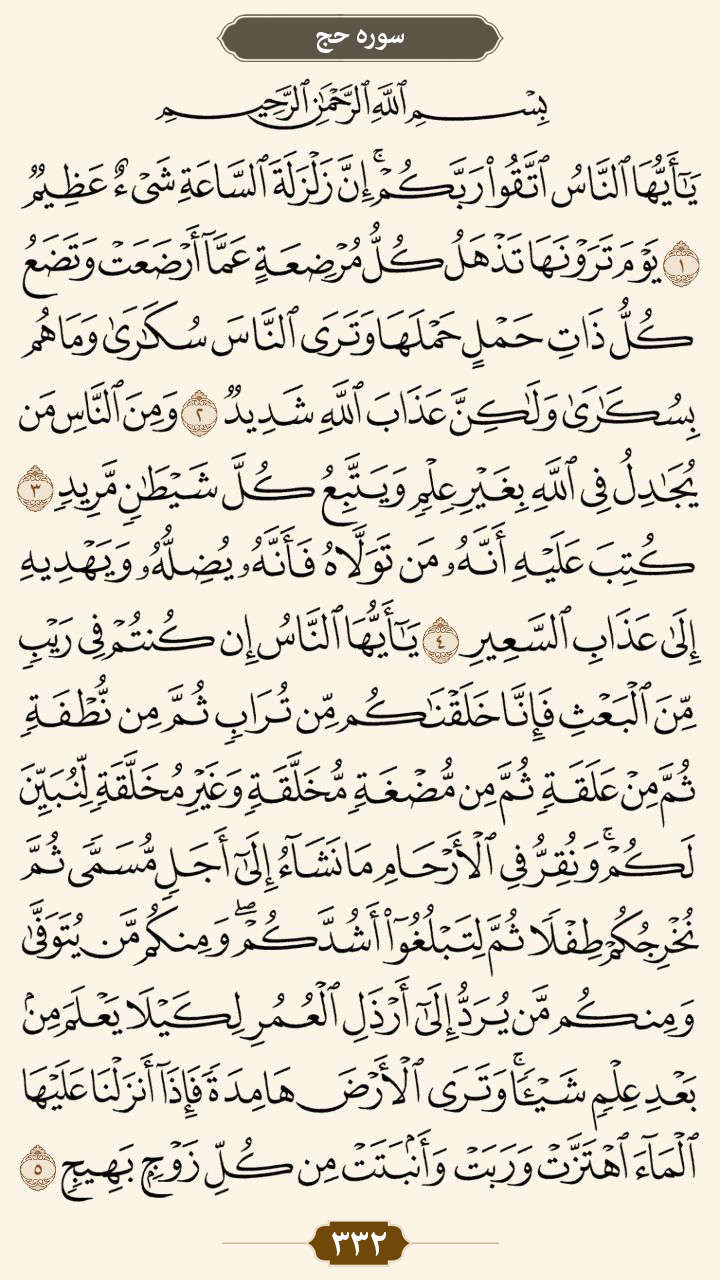 سوره حج
بِسْمِ ٱللَّهِ ٱلرَّحْمَٰنِ ٱلرَّحِيمِ
يَٰٓأَيُّهَا ٱلنَّاسُ ٱتَّقُوا۟ رَبَّكُمْ ۚ إِنَّ زَلْزَلَةَ ٱلسَّاعَةِ شَىْءٌ عَظِيمٌ
١ يَوْمَ تَرَوْنَهَا تَذْهَلُ كُلُّ مُرْضِعَةٍ عَمَّآ أَرْضَعَتْ وَتَضَعُ
كُلُّ ذَاتِ حَمْلٍ حَمْلَهَا وَتَرَى ٱلنَّاسَ سُكَٰرَىٰ وَمَا هُم
بِسُكَٰرَىٰ وَلَٰكِنَّ عَذَابَ ٱللَّهِ شَدِيدٌ ٢ وَمِنَ ٱلنَّاسِ مَن
يُجَٰدِلُ فِى ٱللَّهِ بِغَيْرِ عِلْمٍ وَيَتَّبِعُ كُلَّ شَيْطَٰنٍ مَّرِيدٍ ٣
كُتِبَ عَلَيْهِ أَنَّهُۥ مَن تَوَلَّاهُ فَأَنَّهُۥ يُضِلُّهُۥ وَيَهْدِيهِ
إِلَىٰ عَذَابِ ٱلسَّعِيرِ ٤ يَٰٓأَيُّهَا ٱلنَّاسُ إِن كُنتُمْ فِى رَيْبٍ
مِّنَ ٱلْبَعْثِ فَإِنَّا خَلَقْنَٰكُم مِّن تُرَابٍ ثُمَّ مِن نُّطْفَةٍ
ثُمَّ مِنْ عَلَقَةٍ ثُمَّ مِن مُّضْغَةٍ مُّخَلَّقَةٍ وَغَيْرِ مُخَلَّقَةٍ لِّنُبَيِّنَ
لَكُمْ ۚ وَنُقِرُّ فِى ٱلْأَرْحَامِ مَا نَشَآءُ إِلَىٰٓ أَجَلٍ مُّسَمًّى ثُمَّ
نُخْرِجُكُمْ طِفْلًا ثُمَّ لِتَبْلُغُوٓا۟ أَشُدَّكُمْ ۖ وَمِنكُم مَّن يُتَوَفَّىٰ
وَمِنكُم مَّن يُرَدُّ إِلَىٰٓ أَرْذَلِ ٱلْعُمُرِ لِكَيْلَا يَعْلَمَ مِنۢ
بَعْدِ عِلْمٍ شَيْـًٔا ۚ وَتَرَى ٱلْأَرْضَ هَامِدَةً فَإِذَآ أَنزَلْنَا عَلَيْهَا
ٱلْمَآءَ ٱهْتَزَّتْ وَرَبَتْ وَأَنۢبَتَتْ مِن كُلِّ زَوْجٍۭ بَهِيجٍ ٥
٣٣٢